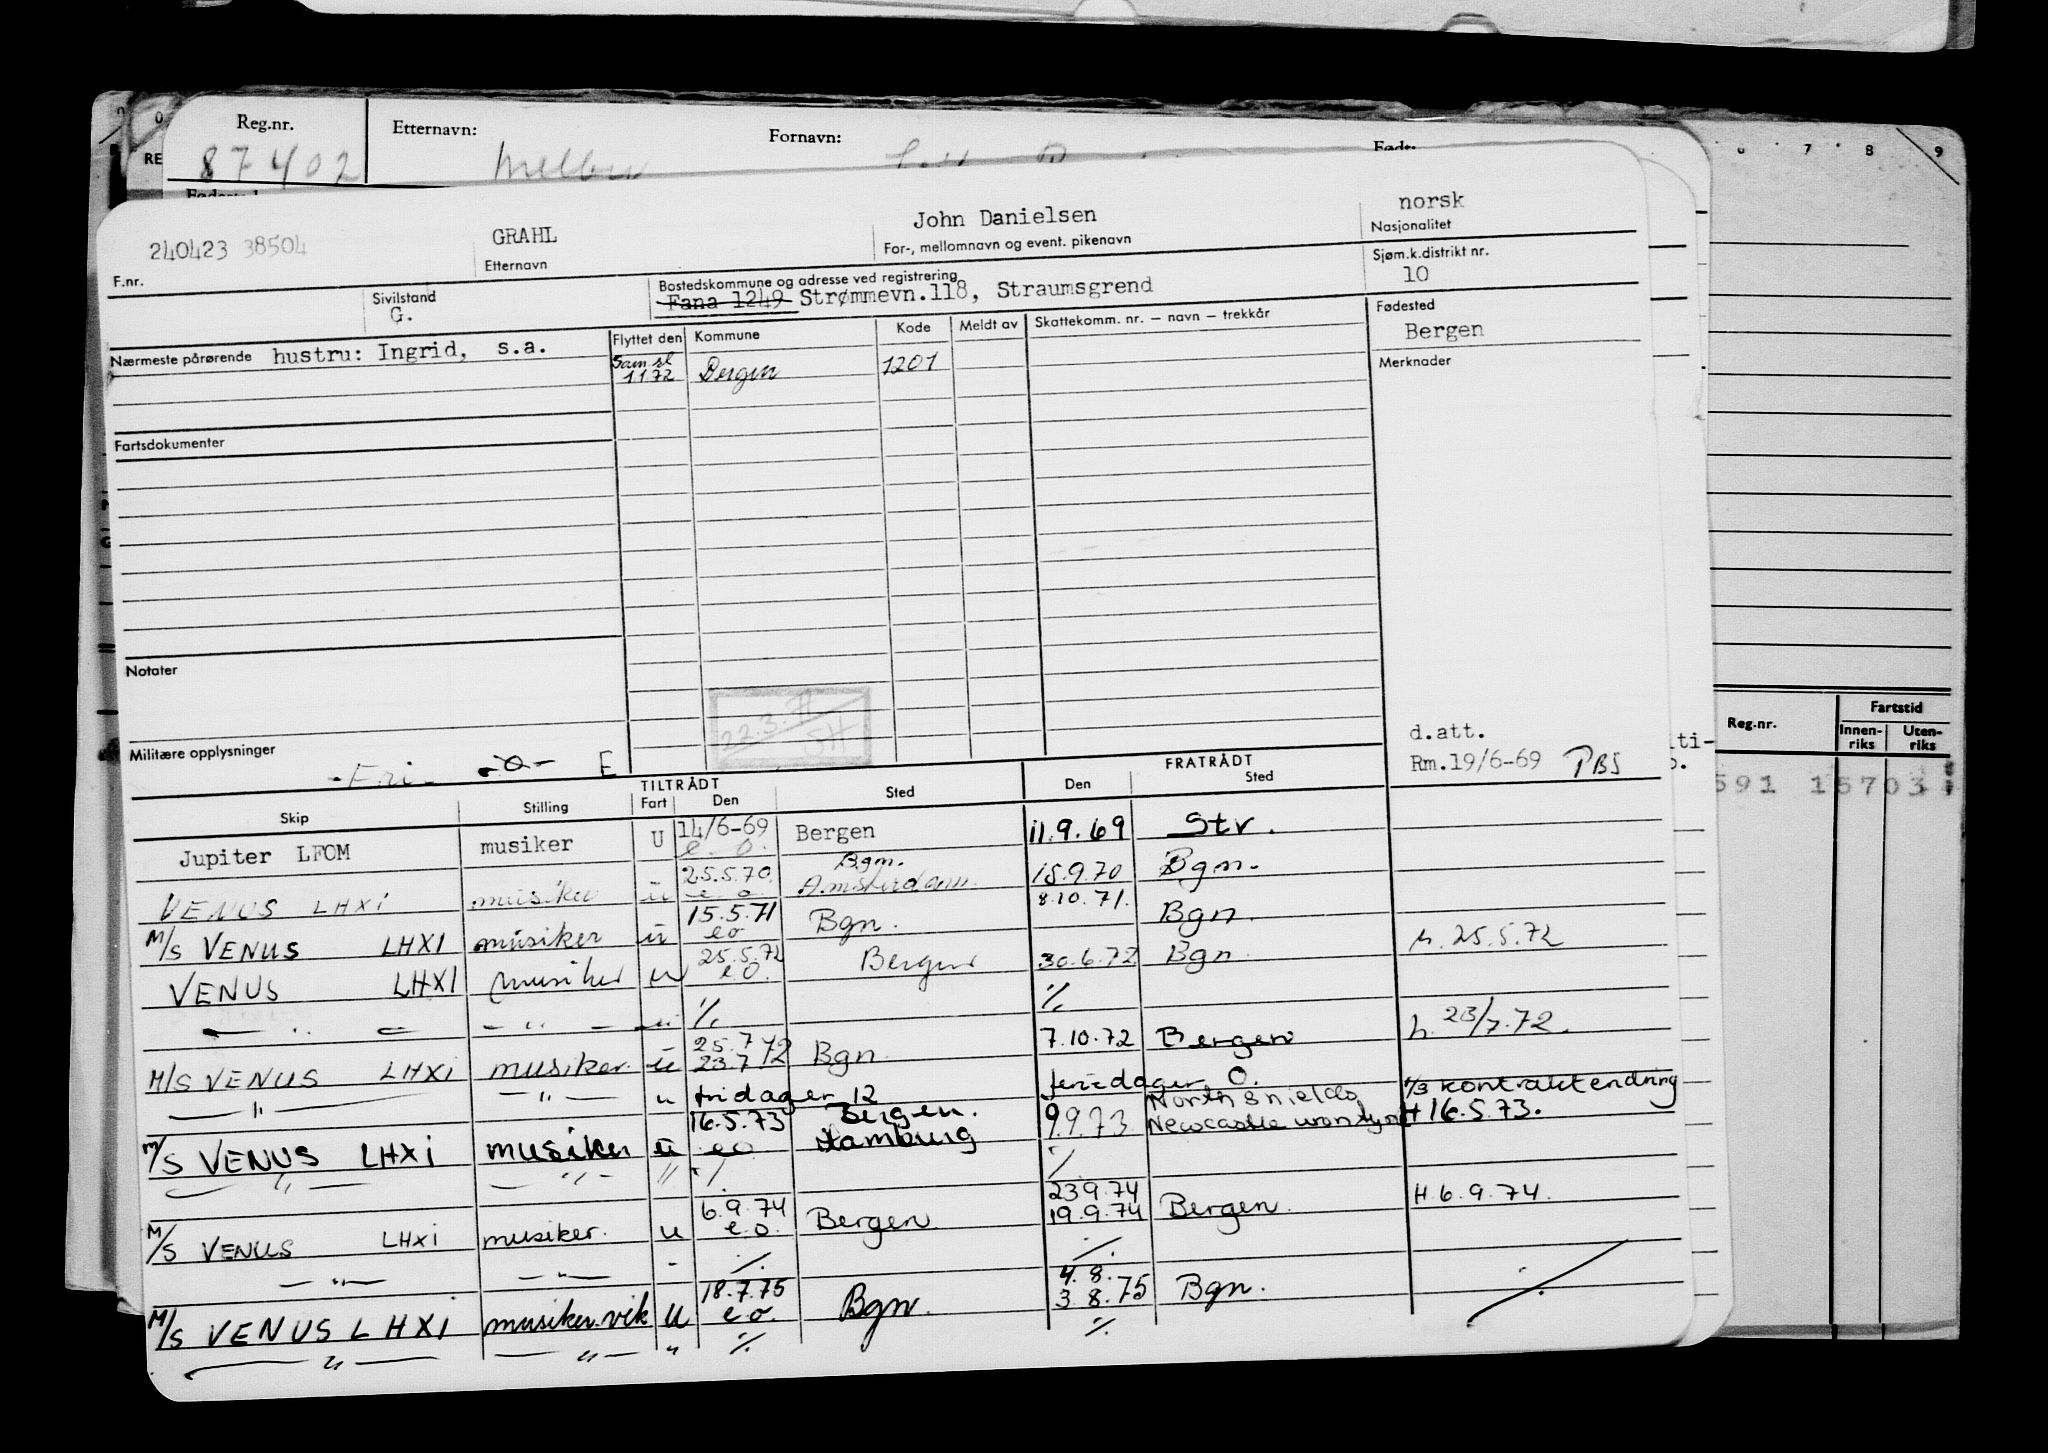 Reg.nr. Etternavn: Fornavn: Født:
87402
RE
7 8 9
240423 38504 GRAHL John Danielsen norsk
F.nr. Etternavn For-, mellomnavn og event. pikenavn Nasjonalitet
Sivilstand Bostedskommune og adresse ved registrering Sjøm.k.distrikt nr.
G. Fana 1249 Strømmevn.118, Straumsgrend 10
Nærmeste pårørende hustru: Ingrid, s.a. Flyttet den Kommune Kode Meldt av Skattekomm. nr. — navn — trekkår Fødested
Bergen
Sam sl 1172 Bergen 1201 Merknader
Fartsdokumenter
Notater
22.3.71 SH
Militære opplysninger -Fri- -0- E
d.att.
Rm.19/6-69 PBS
Reg.nr. Fartstid
Innenriks Utenriks
591 15703
TILTRÅDT FRATRÅDT
Skip Stilling Fart Den Sted Den Sted
Jupiter LFOM musiker U 14/6-69 e.o. Bergen 11.9.69 Str.
VENUS LHXI musiker u 25.5.70 e.o. Bgn. Amsterdam 15.9.70 Bgn.
M/S VENUS LHXI musiker u 15.5.71 eo Bgn. 8.10.71. Bgn.
VENUS LHXI musiker u 25.5.72 e.o. Bergen 30.6.72 Bgn. 25.5.72
— " — — " — ./. ./.
M/S VENUS LHXI musiker u 25.7 23.7 72 Bgn 7.10.72 Bergen 23/7.72.
— " — — " — u fridager 12 feriedager 0. kontraktendring
M/S VENUS LHXI musiker u 16.5.73 eo Bergen. Hamburg 9.9.73 North Shields Newcastle H 16.5.73.
— " — — " — " ./. ./.
M/S VENUS LHXI musiker. u 6.9.74 e.o. Bergen 23.9.74 19.9.74 Bergen. H 6.9.74.
— " — — " — - ./. ./.
M/S VENUS LHXI musiker.vik U 18.7.75 e.o. Bgn. 4.8. 3.8.75 Bgn.
— " — — " — " ./. ./.